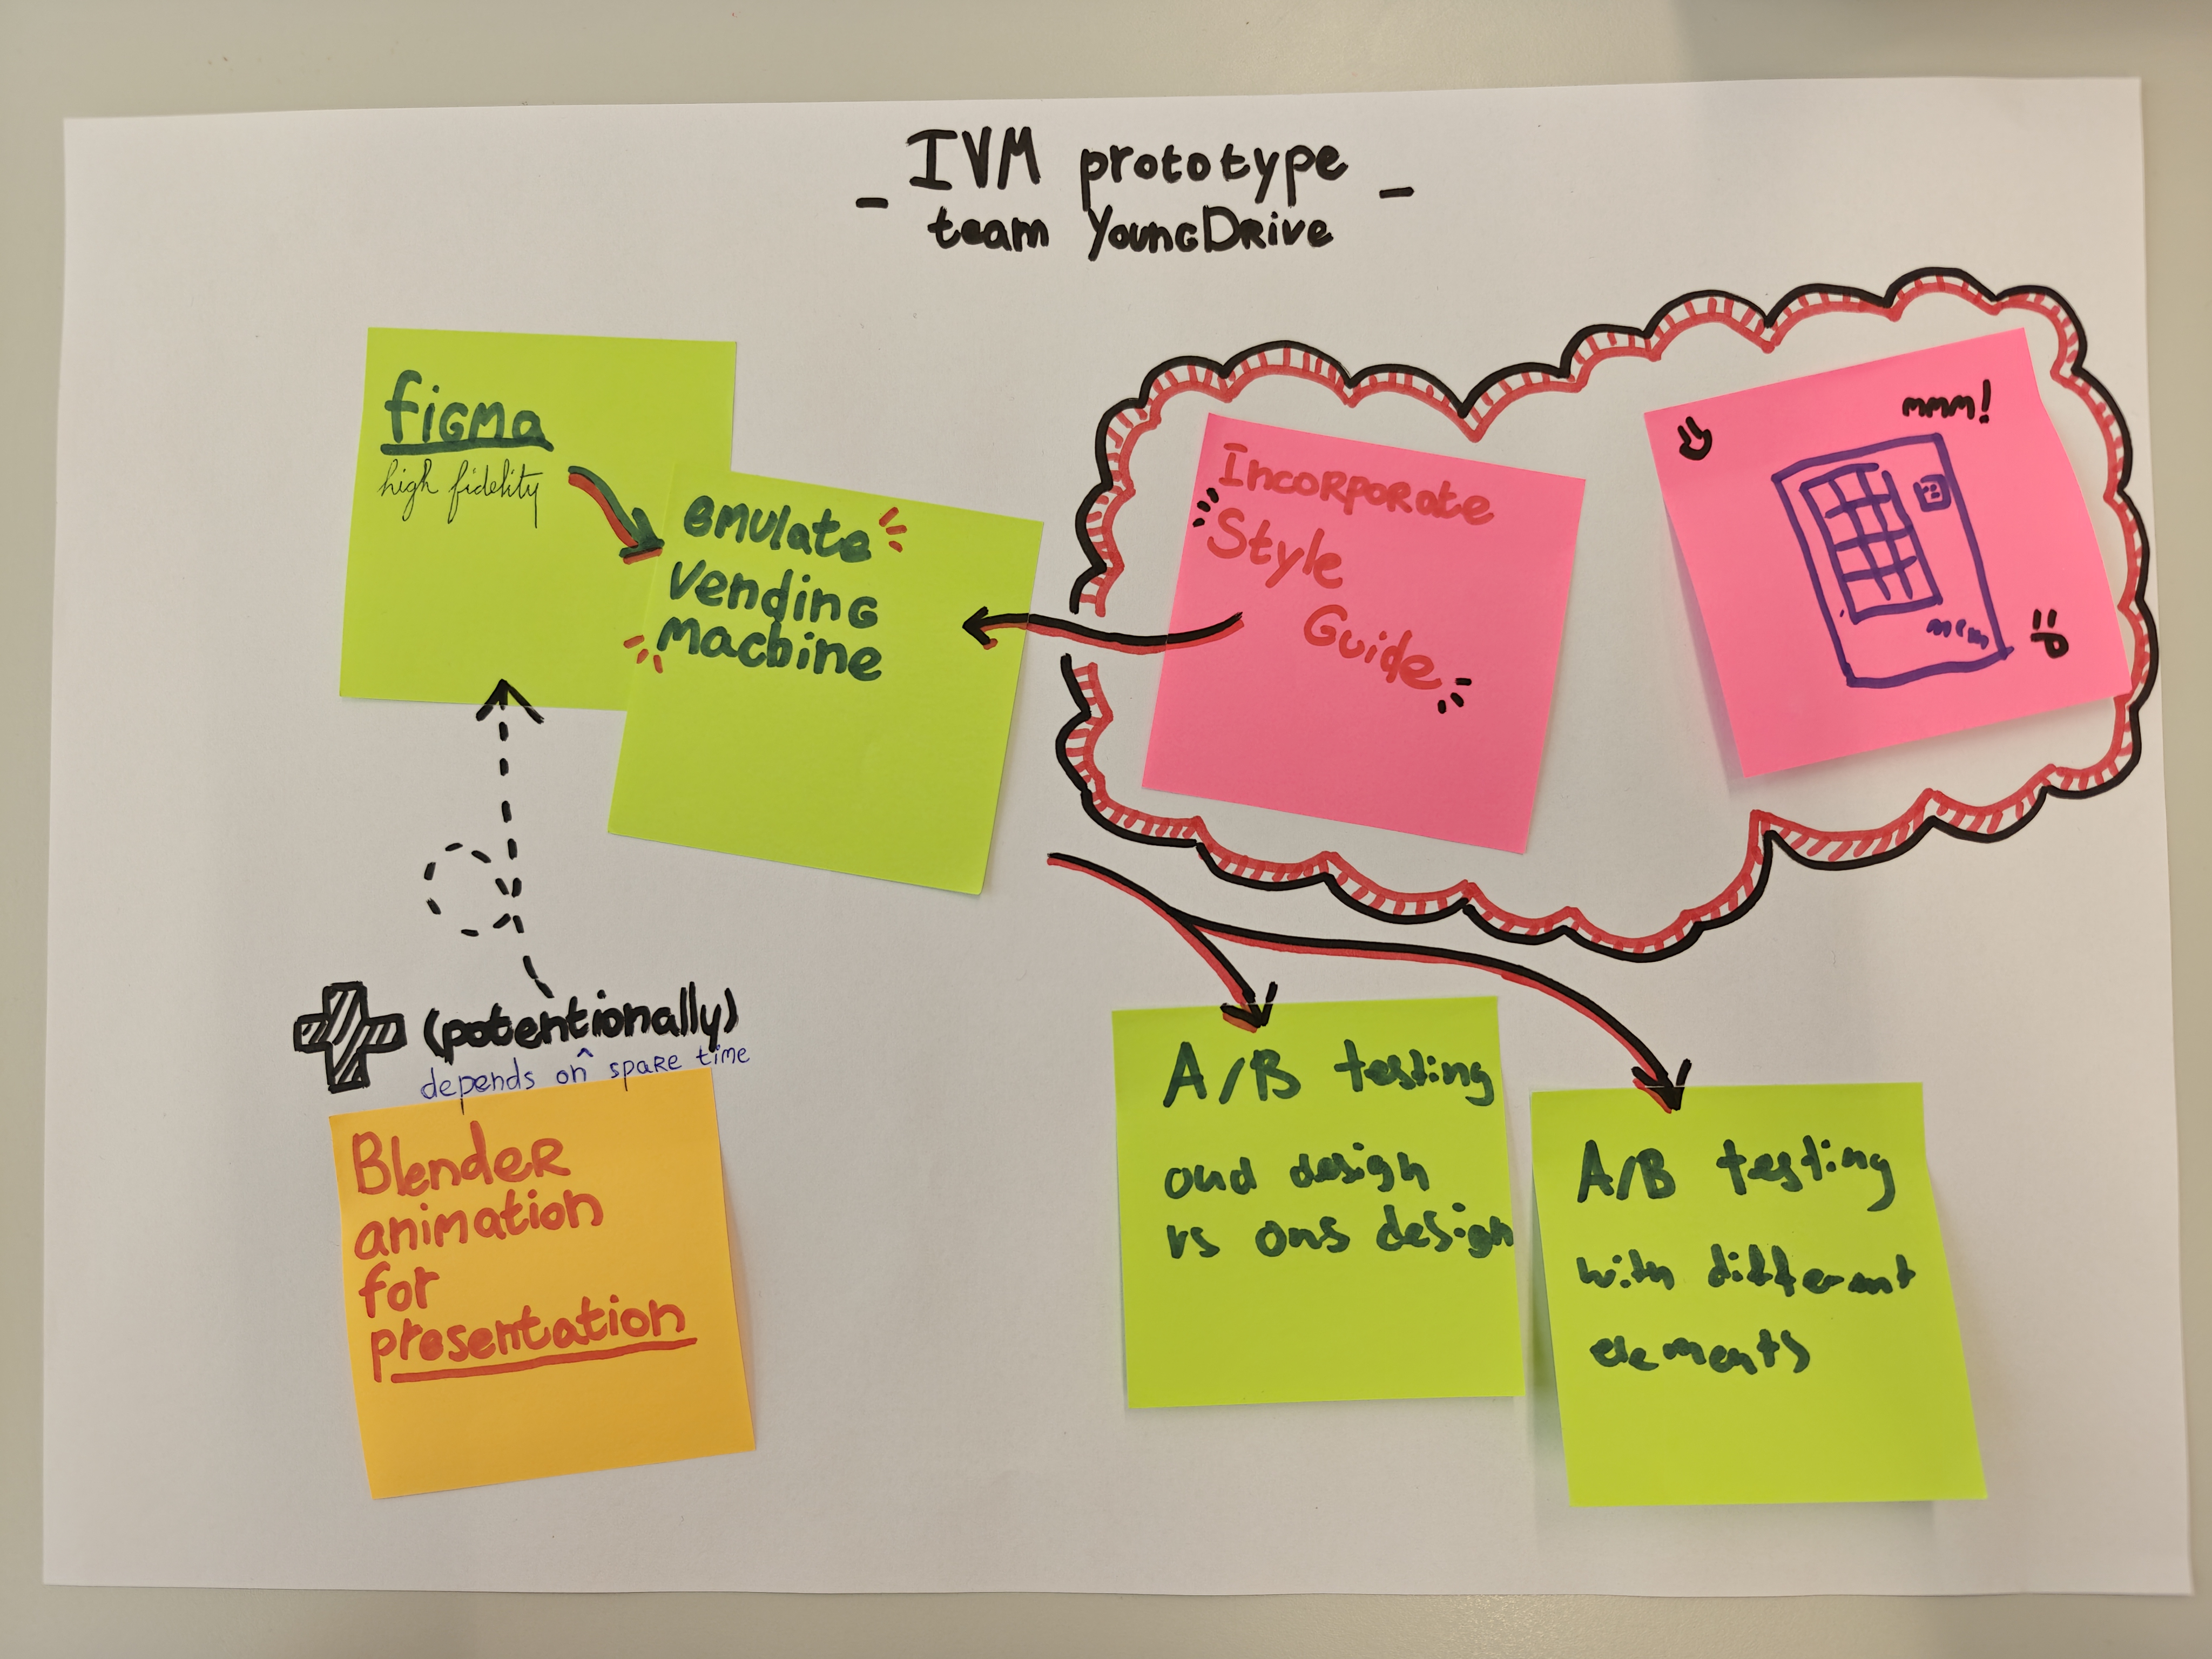 IVM prototype
team YoungDrive
figma
high fidelity
emulate
vending
machine
Incorporate
Style
Guide
mmm!
(potentionally)
depends on ^ spare time
Blender
animation
for
presentation
A/B testing
oud design
vs ons design
A/B testing
with different
elements